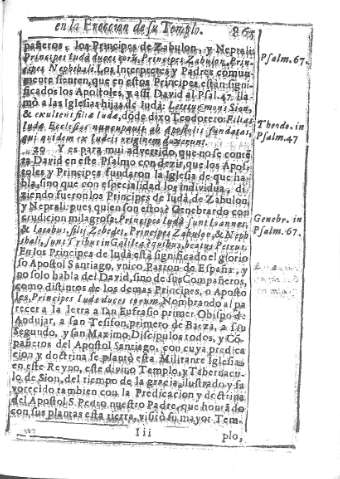 en la Ereccion de su Templo. 865
pañeros, los Principes de Zabulon, y Neptali:
Principes Iuda duces eorum, Principes Zabulon, Prin-
cipes Nephthali. Los Interpretes y Padres comun-
mente sienten, que en estos Principes están signi-
ficados los Apostoles, y assi David al Psal. 47. lla-
mò a las Iglesias hijas de Iuda: Letetur mons Sion,
& exultent filiæ Iuda, dõde dixo Teodorero: Filias
Iuda Ecclesias nuncupauit ab Apostolis fundatas,
qui quidem ex Iudeis originem duxerunt.
29 Y es para mui advertido, que no se conten-
ta David en este Psalmo con dezir, que los Apos-
toles y Principes fundaron la Iglesia de que ha-
bla, sino que con especialidad los individua, di-
ziendo fueron los Principes de Iuda, de Zabulon,
y Neptali: pues quien son estos? Genebrardo con
erudicion milagrosa: Principes Iuda sunt Ioannes,
& Iacobus, filij Zebedei, Principes Zabulon, & Neph
thali, sunt
En los Principes de Iuda está significado el glorio
so Apostol Santiago, vnico Patron de España, y
no solo habla del David, sino de sus Compañeros,
como distintos de los demas Principes, o Aposto
les, Principes Iuda duces eorum. Nombrando al pa
recer a la letra a San Eufrasio primer Obispo de
Andujar, a san Tesifon, primero de Baeza, a su
Segundo, y san Maximo Discipulos todos, y Cõ-
pañeros del Apostol Santiago, con cuya predica
cion y doctrina se plantò esta Militante Iglesia
en este Reyno, este divino Templo, y Tabernacu-
lo de Sion, del tiempo de la gracia, ilustrado y fa
vorecido tambien con la Predicacion y doctrina
del Apostol S. Pedro nuestro Padre, que honrã do
con sus plantas esta tierra, visitò su mayor Tem-
Iii plo,
Psalm. 67.
Theodo. in
Psalm. 47
Genebr. in
Psalm. 67.